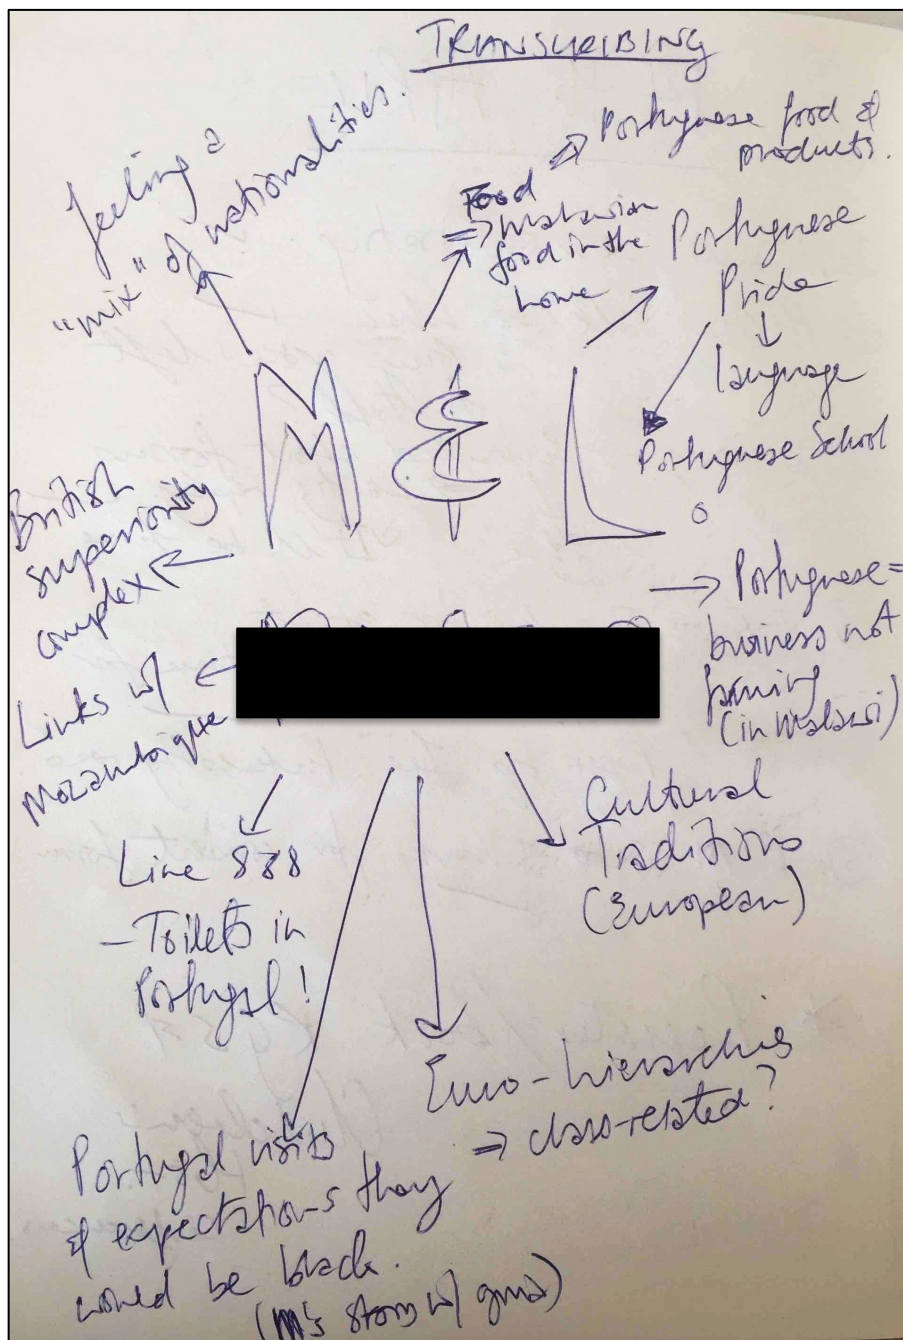 TRANSCRIBING
feeling a
"mix" of nationalities.
Food
⇒ Malawian
food in the
home
⇒ Portuguese food &
products.
Portuguese
Pride
↓
language
Portuguese School
M & L
British
superiority
complex
Links w/
Mozambique
→ Portuguese =
business not
farming
(in Malawi)
Line 888
- Toilets in
Portugal!
Cultural
Traditions
(European)
Euro-hierarchies
⇒ class-related?
Portugal visits
& expectations they
would be black.
(M's story w/ gma)